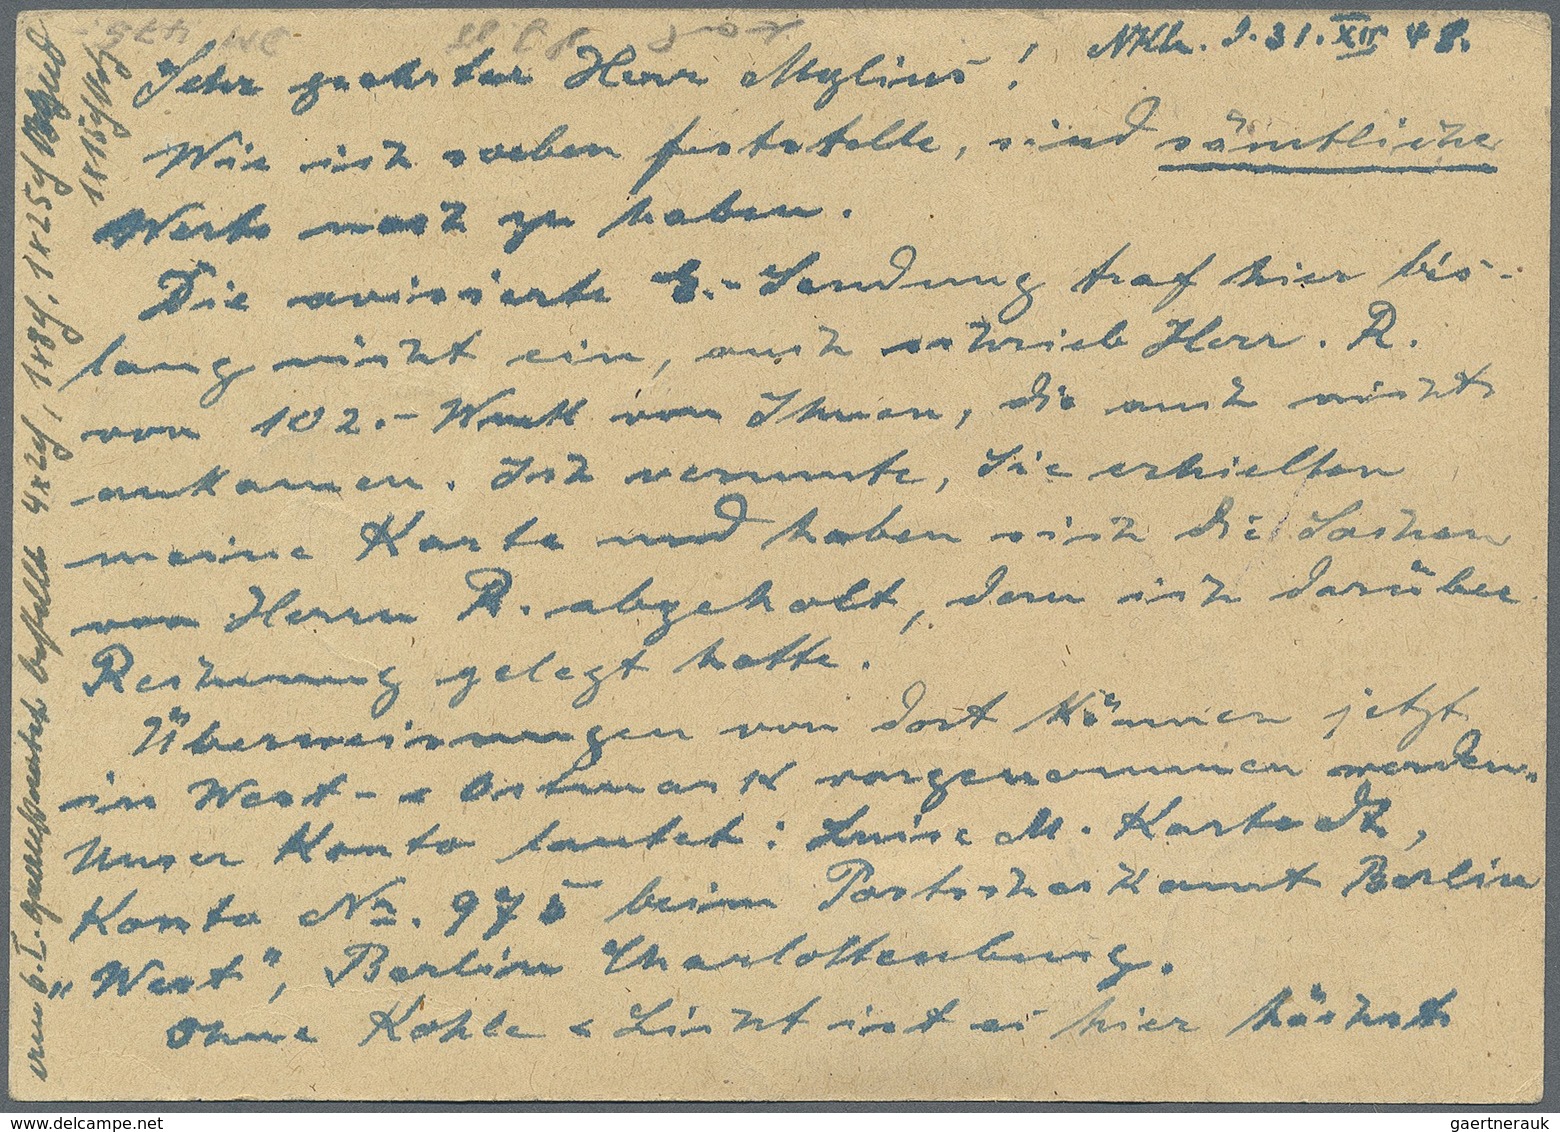 Nkln. d. 31. XII 48.
Sehr geehrter Herr Mylius!
Wie ich soeben feststelle, sind sämtliche
Werte noch zu haben.
Die avisierte E.-Sendung traf hier bis-
lang nicht ein, auch schrieb Herr. R.
von 102.- von Ihnen, die auch nicht
ankamen. Ich vermute, Sie erhielten
meine Karte und haben sich die Sachen
von Herrn R. abgeholt, dem ich darüber
Rechnung gelegt hatte.
Überweisungen von dort können jetzt
in West- & Ostmark vorgenommen werden.
Unser Konto lautet: Luise M. Karstedt,
Konto No. 975 beim Postscheckamt Berlin
„West", Berlin Charlottenburg.
Ohne Kohle & Licht ist es hier höchst
6.I. bestellt 4x2, 1x8, 1x25
1x15
www.delcampe.net
gaertnerauk